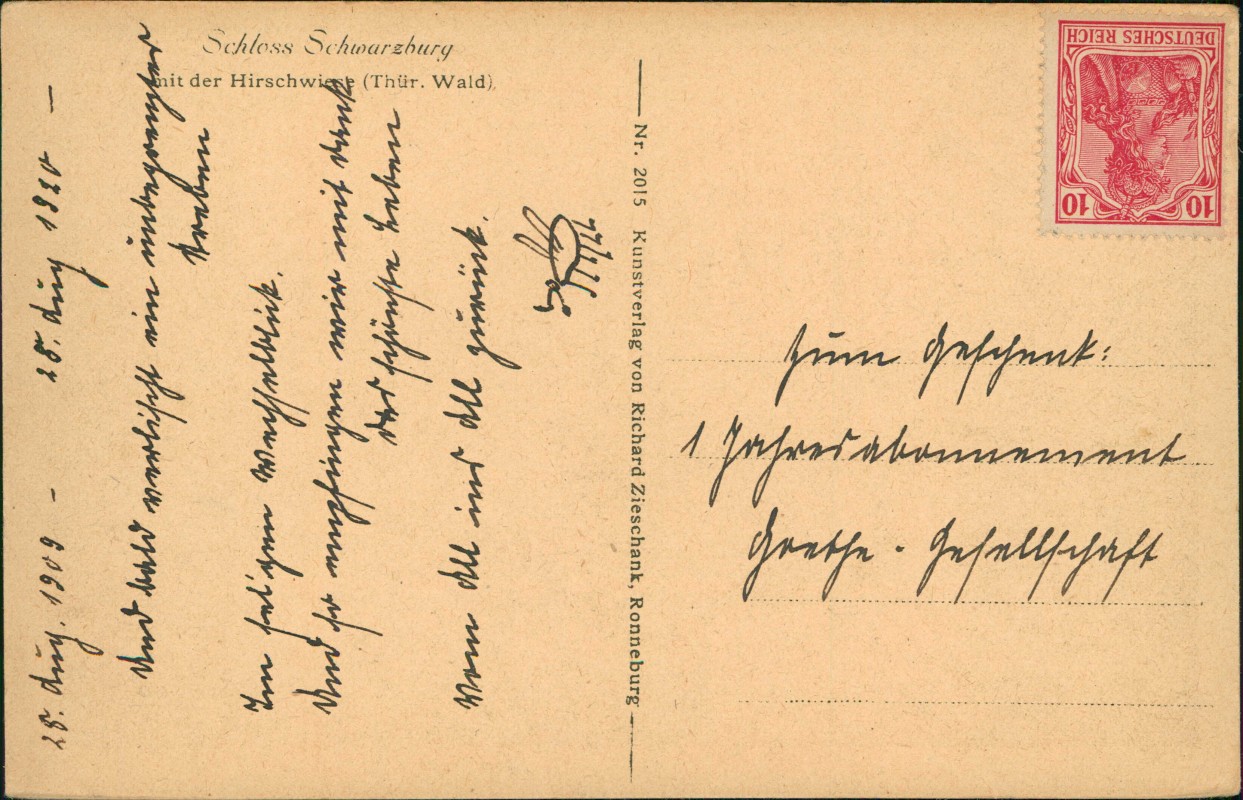 Schloss Schwarzburg
mit der Hirschwiese (Thür. Wald)
28. Aug. 1909 – 28. Aug 1920 –
Und bald verlischt ein unbegrenztes
Streben
Im sel'gen Wechselblick.
Und so empfangen wir mit Dank
das schönste Leben
Vom All ins All zurück.
Nr. 2015 Kunstverlag von Richard Zieschank, Ronneburg
DEUTSCHES REICH
10 10
Zum Geschenk:
1 Jahresabonnement
Goethe-Gesellschaft